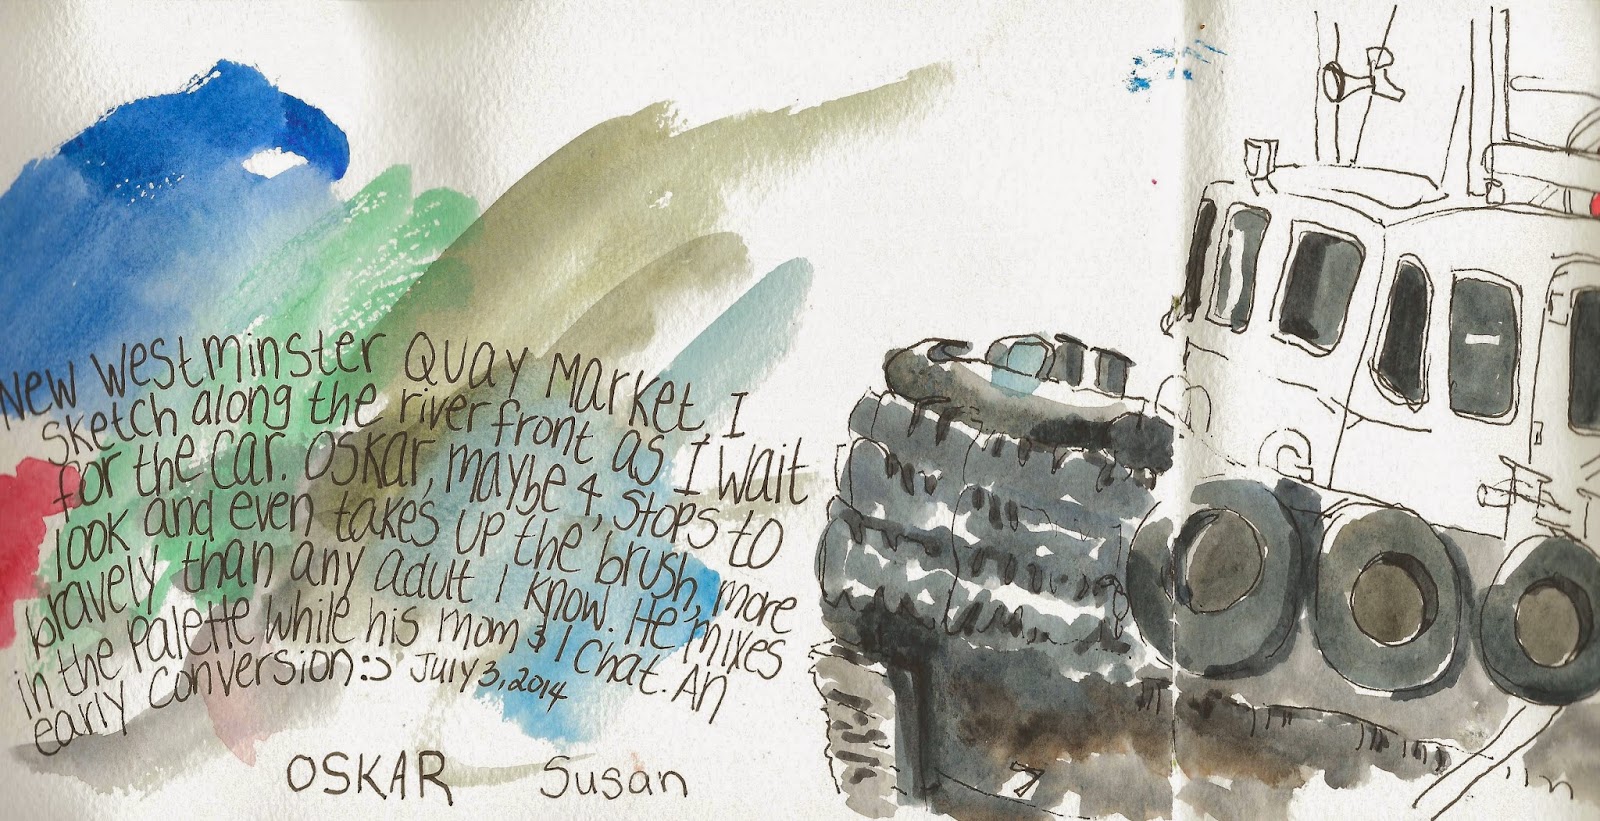 New Westminster Quay Market. I
sketch along the riverfront as I wait
for the car. Oskar, maybe 4, stops to
look and even takes up the brush, more
bravely than any adult I know. He mixes
in the palette while his mom & I chat. An
early conversion :) July 3, 2014
OSKAR Susan